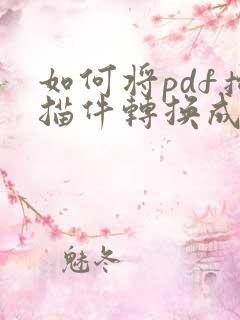 如何将pdf扫
描件轉换成
魅冬